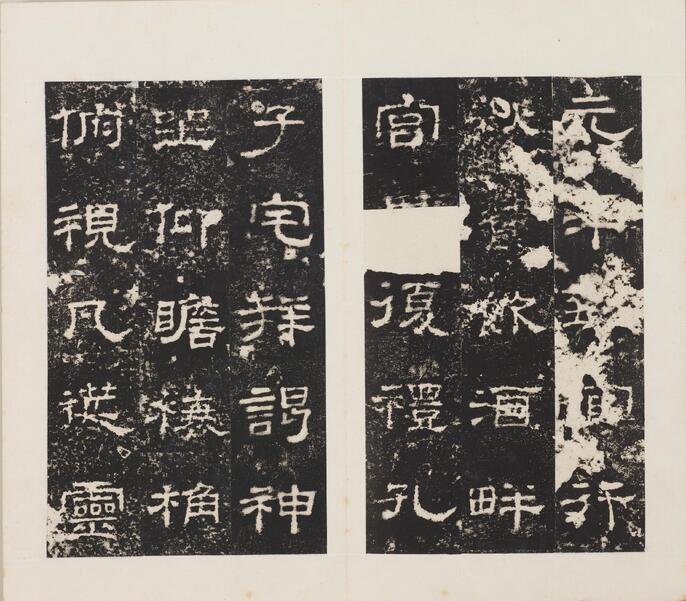 元官行
秋飲酒畔
宮復禮孔
子宅拜謁神
坐仰瞻榱桷
俯視几筵靈